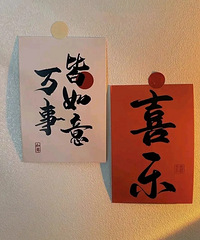 万事
皆如意
喜乐